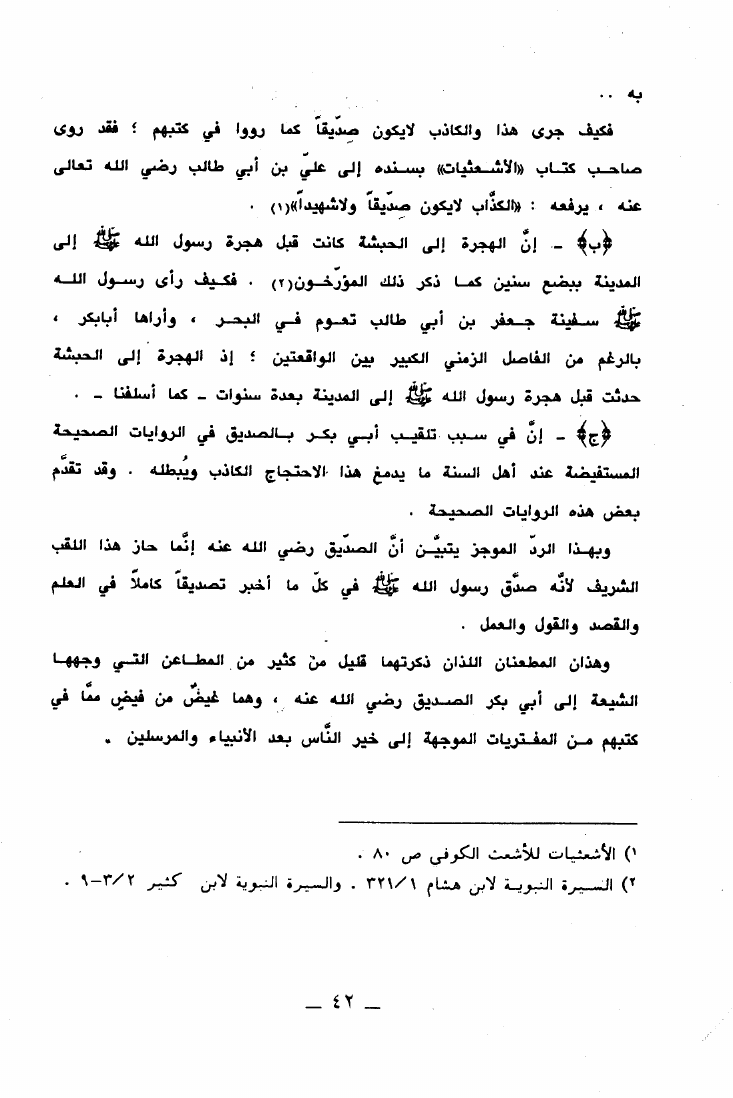 به ..
فكيف جرى هذا والكاذب لايكون صدّيقاً كما رووا في كتبهم ؛ فقد روى
صاحب كتاب «الأشعثيات» بسنده إلى عليّ بن أبي طالب رضي الله تعالى
عنه ، يرفعه : «الكذَّاب لايكون صدّيقاً ولاشهيداً»(١) .
﴿ب﴾ ـ إنَّ الهجرة إلى الحبشة كانت قبل هجرة رسول الله ﷺ إلى
المدينة ببضع سنين كما ذكر ذلك المؤرّخون(٢) . فكيف رأى رسول الله
ﷺ سفينة جعفر بن أبي طالب تعوم في البحر ، وأراها أبابكر ،
بالرغم من الفاصل الزمني الكبير بين الواقعتين ؛ إذ الهجرة إلى الحبشة
حدثت قبل هجرة رسول الله ﷺ إلى المدينة بعدة سنوات ـ كما أسلفنا ـ .
﴿ج﴾ ـ إنَّ في سبب تلقيب أبي بكر بالصديق في الروايات الصحيحة
المستفيضة عند أهل السنة ما يدمغ هذا الاحتجاج الكاذب ويُبطله . وقد تقدَّم
بعض هذه الروايات الصحيحة .
وبهذا الردّ الموجز يتبيَّن أنَّ الصدّيق رضي الله عنه إنَّما حاز هذا اللقب
الشريف لأنَّه صدَّق رسول الله ﷺ في كلّ ما أخبر تصديقاً كاملاً في العلم
والقصد والقول والعمل .
وهذان المطعنان اللذان ذكرتهما قليل من كثير من المطاعن التي وجهها
الشيعة إلى أبي بكر الصديق رضي الله عنه ، وهما غيضٌ من فيضٍ ممَّا في
كتبهم من المفتريات الموجهة إلى خير النَّاس بعد الأنبياء والمرسلين .
١) الأشعثيات للأشعث الكوفي ص ٨٠ .
٢) السيرة النبوية لابن هشام ٣٢١/١ . والسيرة النبوية لابن كثير ٣/٢-٩ .
ـ ٤٢ ـ